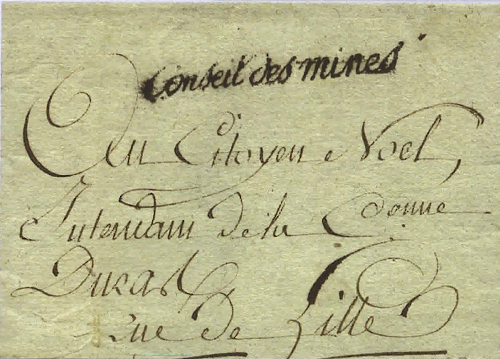 Conseil des mines
Au Citoyen Noël,
Intendant de la Donne
Duras
Rue de Lille